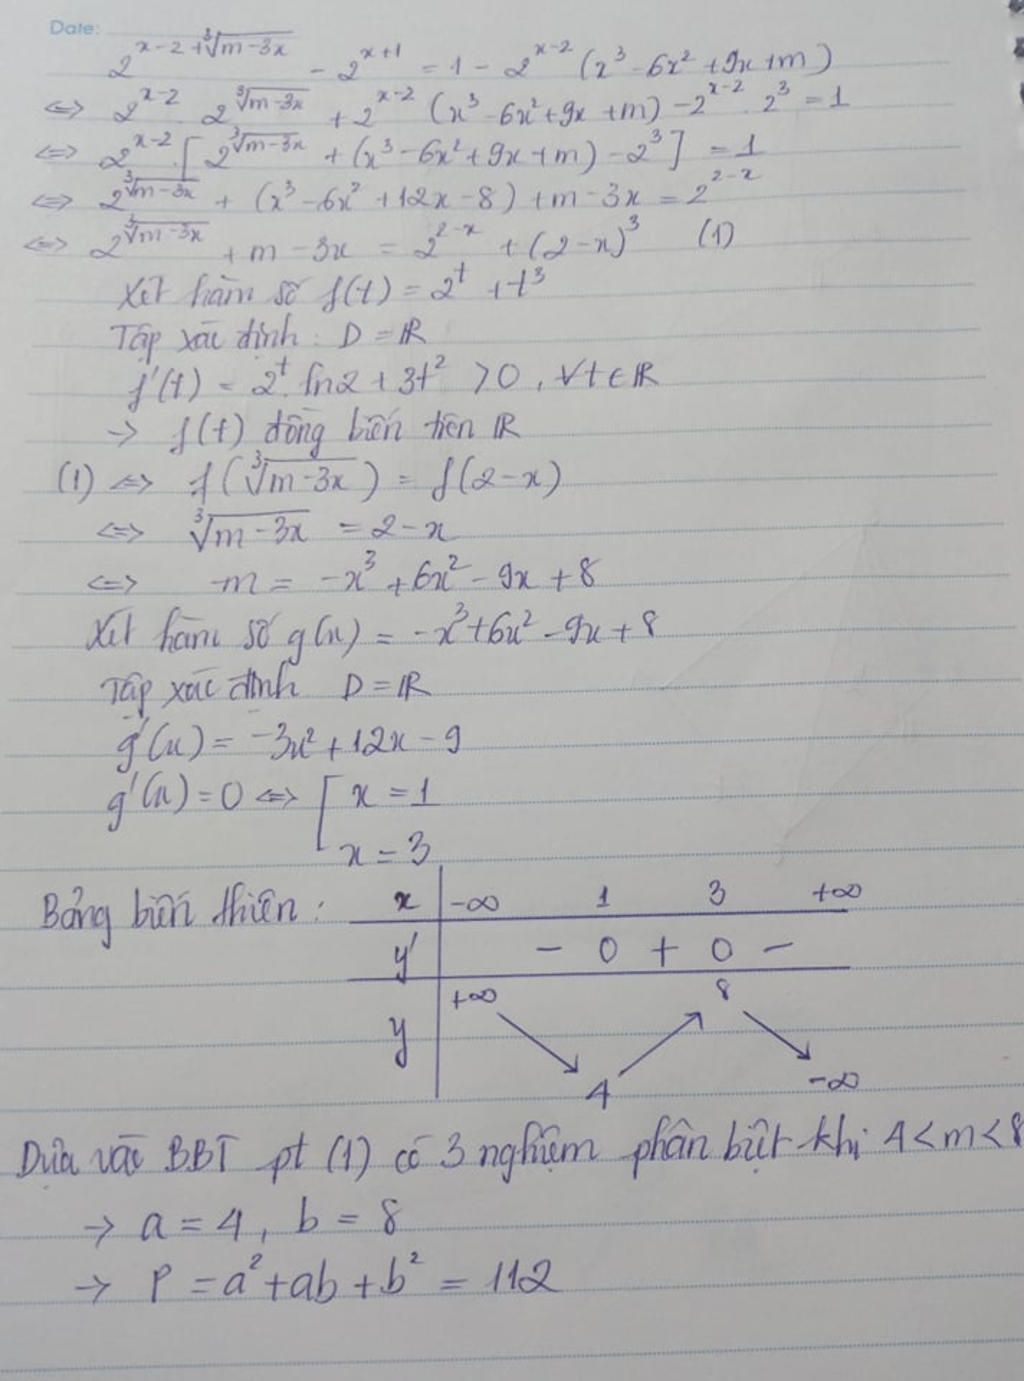 Date:
2^{x-2+∛(m-3x)} - 2^{x+1} = 1 - 2^{x-2} (x³ - 6x² + 9x + m)
⇔ 2^{x-2} . 2^{∛(m-3x)} + 2^{x-2} (x³ - 6x² + 9x + m) - 2^{x-2} . 2³ = 1
⇔ 2^{x-2} . [ 2^{∛(m-3x)} + (x³ - 6x² + 9x + m) - 2³ ] = 1
⇔ 2^{∛(m-3x)} + (x³ - 6x² + 12x - 8) + m - 3x = 2^{2-x}
⇔ 2^{∛(m-3x)} + m - 3x = 2^{2-x} + (2-x)³ (1)
Xét hàm số f(t) = 2^t + t³
Tập xác định : D = ℝ
f'(t) = 2^t . ln2 + 3t² > 0 , ∀t ∈ ℝ
→ f(t) đồng biến trên ℝ
(1) ⇔ f(∛(m-3x)) = f(2-x)
⇔ ∛(m-3x) = 2-x
⇔ m = -x³ + 6x² - 9x + 8
Xét hàm số g(x) = -x³ + 6x² - 9x + 8
Tập xác định D = ℝ
g'(x) = -3x² + 12x - 9
g'(x) = 0 ⇔ [ x = 1
x = 3
Bảng biến thiên :
x -∞ 1 3 +∞
y' - 0 + 0 -
y +∞ ↘ 4 ↗ 8 ↘ -∞
Dựa vào BBT pt (1) có 3 nghiệm phân biệt khi 4 < m < 8
→ a = 4, b = 8
→ P = a² + ab + b² = 112